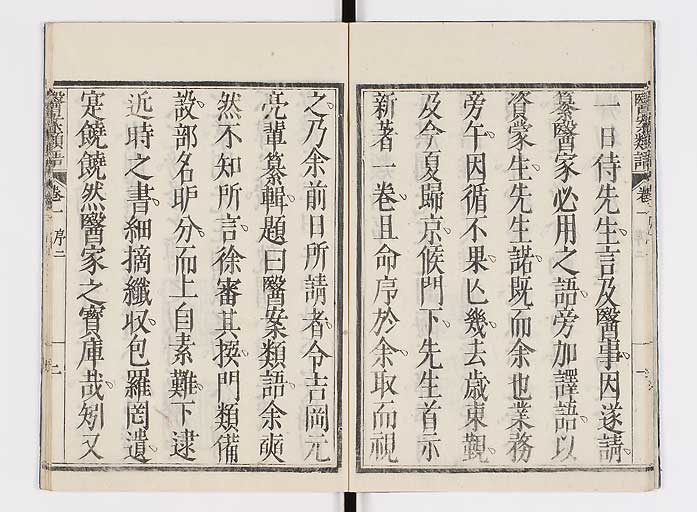 醫案類語 卷一 序
一日侍先生言及醫事因遂請
纂醫家必用之語旁加譯語以
資蒙生先生諾既而余也業務
旁午因循不果亾幾去歲東覲
及今夏歸京候門下先生首示
新著一卷且命序於余取而視
之乃余前日所請者令吉岡元
亮輩纂輯題曰醫案類語余奭
然不知所言徐審其撰門類備
設部名昈分而上自素難下逮
近時之書細摘纖収包羅罔遺
寔饒饒然醫家之寶庫哉矧又
醫案類語 卷一 序二